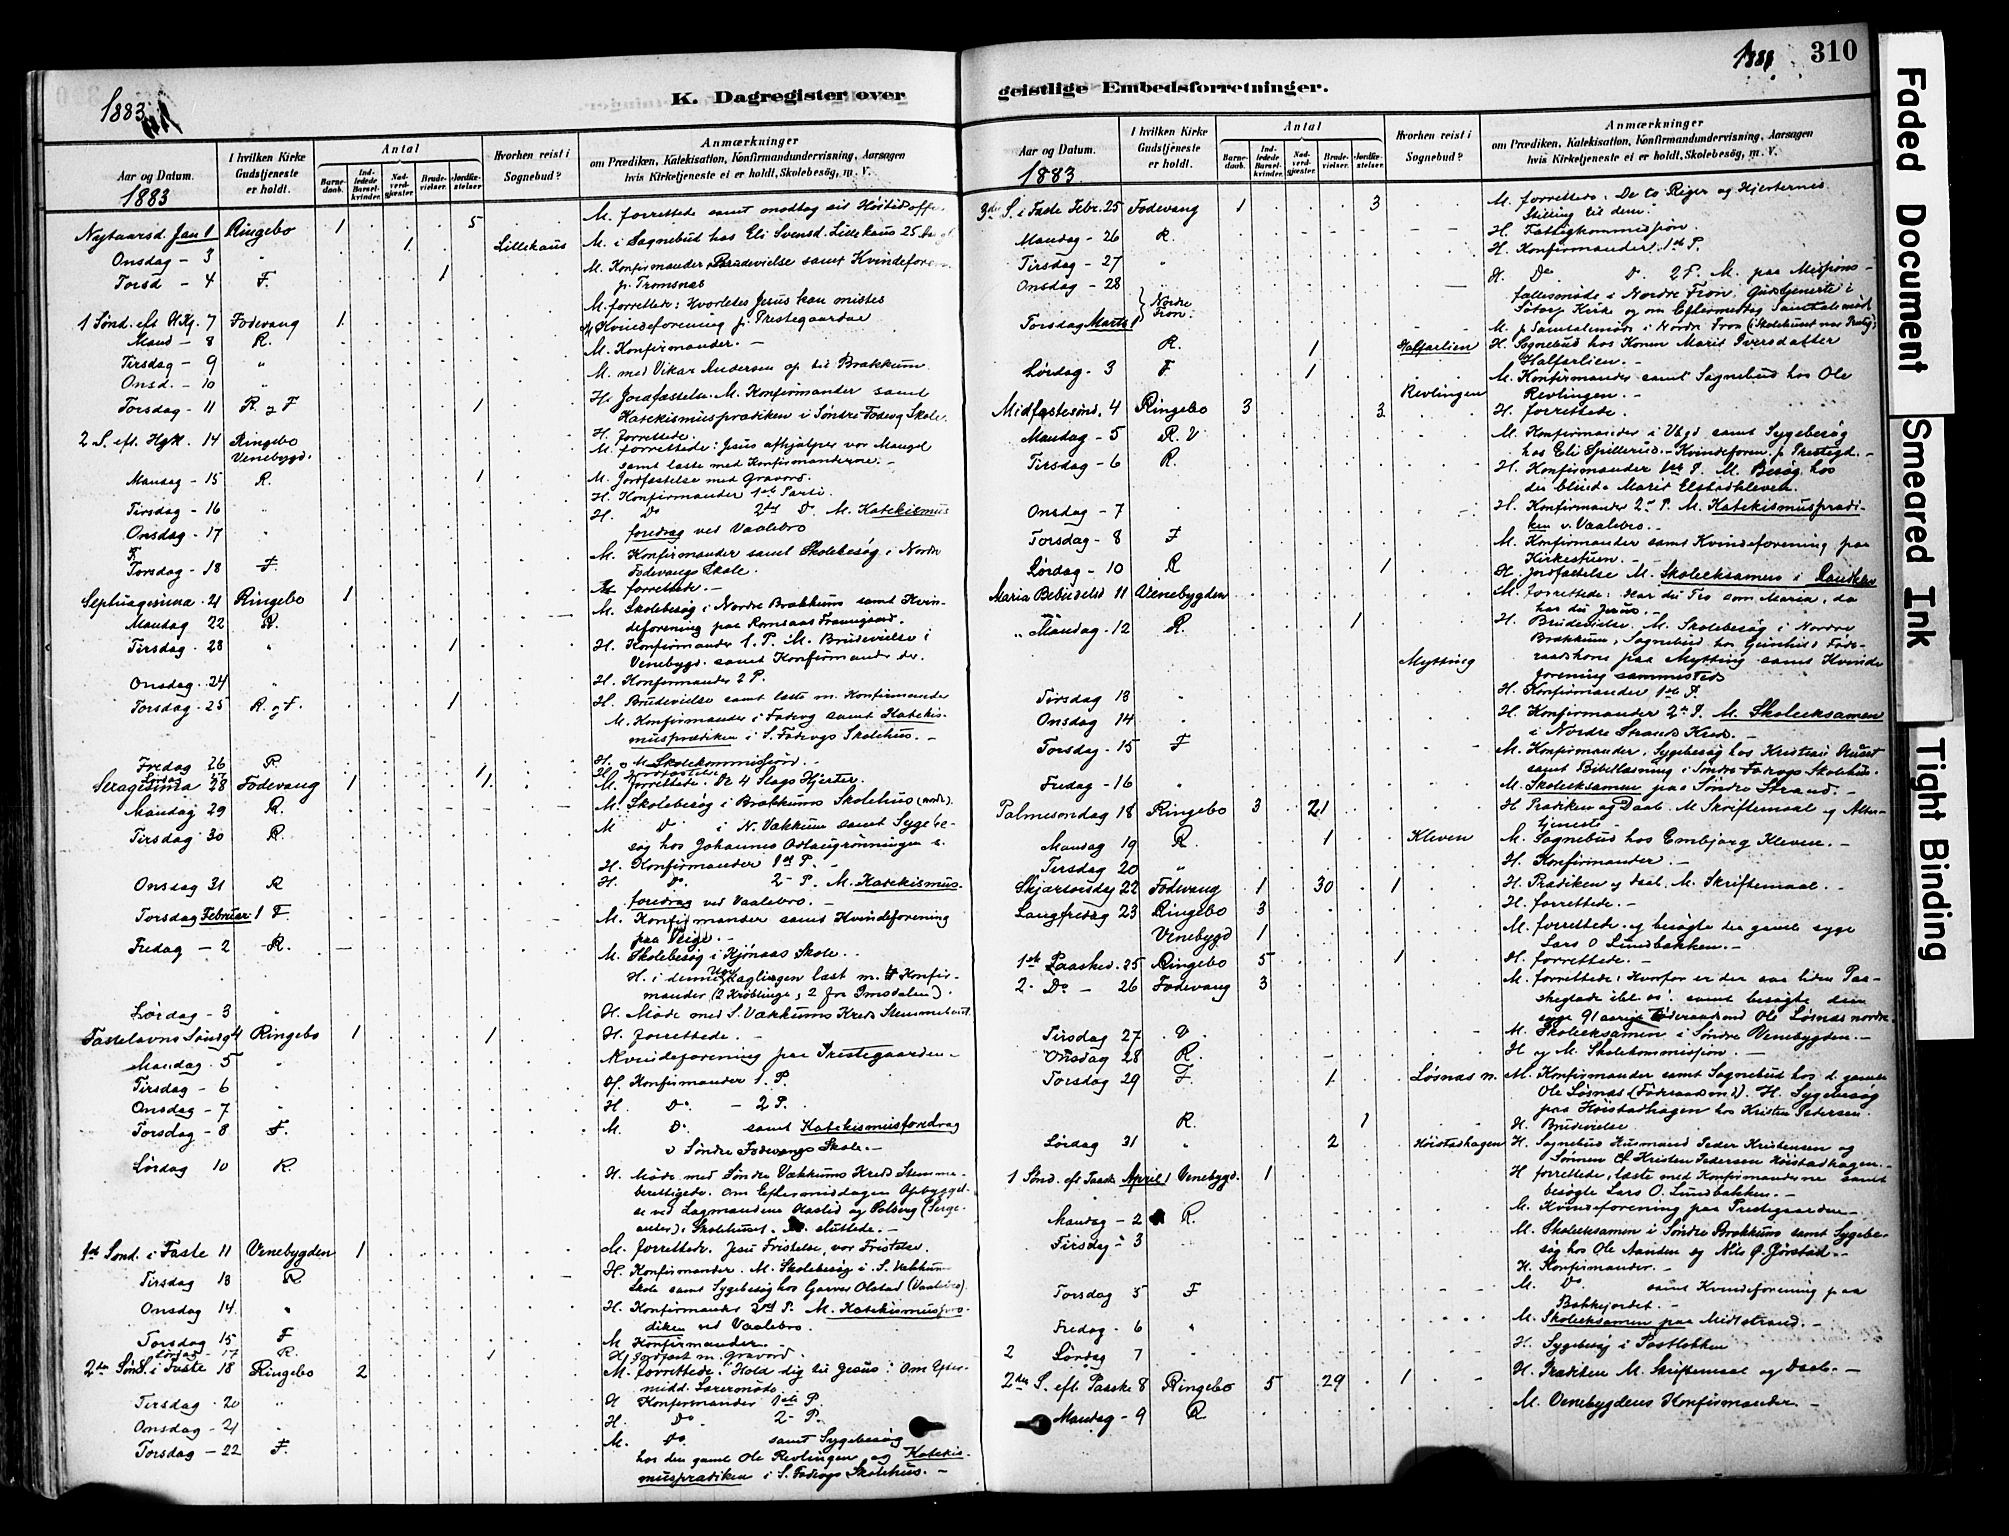 1883.
K. Dagregister over
Aar og Datum.
1883
I hvilken Kirke Gudstjeneste er holdt.
Antal
Barne-daab.
Ind-ledede Barsel-kvinder.
Nad-verd-gjæster
Brude-vielser.
Jordfæ-stelser
Hvorhen reist i Sognebud?
Anmærkninger
om Prædiken, Katekisation, Konfirmandundervisning, Aarsagen
hvis Kirketjeneste ei er holdt, Skolebesøg, m. V.
Nytaarsd. Jan 1 Ringebo 1 5 M. forrettede samt modtog sit Høitidsoffer
Onsdag - 3 " 1 Lillehaus M. i Sognebud hos Eli Svensd. Lillehaus 25
Torsd - 4 F. 1 M. Konfirmander, Brudevielse samt Kvindeforen.
p. Tromsnæs
1 Sønd. eft H.Kg. 7 Fodevang 1 M. forrettede: Hvorledes Jesus kan mistes
Mand - 8 R. Kvindeforening p. Prestegaarden
Tirsdag - 9 " M. Konfirmander. -
Onsd. - 10 " M. med Vikar Andersen op til Brækkum
Torsdag - 11 R. og F 1 H. Jordfæstelse. M. Konfirmander samt
Katekismusprædiken i Søndre Fodevg Skole.
2 S. eft. Hgk. 14 Ringebo H. forrettede.
Venebygd. M. forrettede: Jesus afhjælper vor Mangel
samt læste med Konfirmanderne. -
Mandag - 15 R. 1 M. Jordfæstelse med Gravord.
Tirsdag - 16 " H. Konfirmander 1ste Parti.
Onsdag - 17 " H. Do 2det Do. M. Katekismus
foredrag ved Vaalebro
Torsdag - 18 F. M. Konfirmander samt Skolebesøg i Nordre
Fodevangs Skole.
Septuagesima 21 Ringebo 1 forrettede. -
Mandag 22 R. M. Skolebesøg i Nordre Brækkums samt Kvin-
deforening paa Romsaas Framigaard.
Tirsdag - 23 " 1 H. Konfirmander 1. P. M. Brudevielse i
Venebygd. samt Konfirmander der.
Onsdag - 24 " H. Konfirmander 2 P.
Torsdag - 25 R. og F. 1 H. Brudevielse samt læste m. Konfirmander
M. Konfirmander i Fodevg samt Katekis-
musprædiken i S. Fodevgs Skolehus. -
Fredag 26 R. H. og M. Skolekommission. -
Lørdag 27 1 H. Jordfæstelse
Sexagesima 28 Fodevang 1 1 M. forrettede. De 4 Slags Hjerter.
Mandag 29 R. M. Skolebesøg i Brækkums Skolehus (nordr.).
Tirsdag 30 R M Do i N. Vækkum samt Sygebe-
søg hos Johannes Odlaugrønningen s.
H. Konfirmander 1st P. -
Onsdag 31 R H. Do. 2- P. M. Katekismus-
foredrag ved Vaalebro. -
Torsdag Februar 1 F. M. Konfirmander samt Kvindeforening
paa Veige. -
Fredag - 2 R. - M. Skolebesøg i Kjønaas Skole.
H. i denne Uge daglingen læst m. 4 Konfir-
mander (2 Krøblinge, 2 fra Imsdalen).
Lørdag - 3 " H. Møde med S. Vækkums Kreds Stemmeberet.
Fastelavns Søndg 4 Ringebo 1 1 H. forrettede. -
Mandag - 5 " Kvindeforening paa Prestegaarden -
Tirsdag - 6 " H. Konfirmander 1. P.
Onsdag - 7 " H. Do. - 2 P.
Torsdag - 8 F. M. Do. samt Katekismusforedrag
v Søndre Fodevangs Skole. -
Lørdag 10 R. H. Møde med Søndre Vækkums Kreds Stemme-
berettigede. Om Eftermiddagen Opbyggel-
se ved Lagmandene Aaslid og Solberg (Serge-
anter) i Skolehuset. sluttede. -
1ste Sønd. i Faste 11 Venebygden 1 M. forrettede. Jesu Fristelse, vor Fristelse.
Tirsdag 13 R H. Konfirmander. M. Skolebesøg i S. Vækkum
Skole samt Sygebesøg hos Garver Olstad (Vaalebro).
Onsdag 14. " H. Konfirmander 2det P. M. Katekismuspræ-
diken ved Vaalebro.
Torsdag 15 F M Konfirmander. -
Lørdag - 17 R. 1 H. Jordfæst m. Gravord.
2den Sønd. i Faste 18 Ringebo 2 M. forrettede. Hold dig til Jesus! Om Efter-
midd. Lærermøde.
Tirsdag - 20 " H Konfirmander 1ste P.
Onsdag - 21 " H. Do. 2- P.
Torsdag - 22 F. M. Do. samt Sygebesøg
hos den gamle Ole Revlingen og Katekis-
musprædiken i S. Fodevgs Skolehus. -
1883.
310
geistlige Embedsforretninger.
Aar og Datum.
1883
I hvilken Kirke Gudstjeneste er holdt.
Antal
Barne-daab.
Ind-ledede Barsel-kvinder.
Nad-verd-gjæster.
Brude-vielser.
Jordfæ-stelser.
Hvorhen reist i Sognebud?
Anmærkninger
om Prædiken, Katekisation, Konfirmandundervisning, Aarsagen
hvis Kirketjeneste ei er holdt, Skolebesøg, m. V.
3die S. i Faste Febr. 25 Fodevang 1 3 M. forrettede: De to Riger og Hjerternes
Stilling til dem.
Mandag - 26 R. H. Fattigkommission.
Tirsdag - 27 " H. Konfirmander. 1ste P.
Onsdag - 28 H. Do D. 2 P. M. paa Missions-
fællesmøde i Nordre Fron. Gudstjeneste i
Sødorp Kirke og om Eftermiddag Samtalemøde
Torsdag Marts 1 Nordre Fron. M. p Samtalemøde i Nordre Fron
R. 1 Halfarlien H. Sognebud hos Konen Marit Iversdatter
Halfarlien. -
Lørdag - 3 F. 1 Revlingen M. Konfirmander samt Sognebud hos Ole
Revlingen. -
Midfastesønd. 4 Ringebo 3 3 H. forrettede.
Mandag - 5 R. V M. Konfirmander i V.bgd samt Sygebesøg
hos Eli Spillerud. - Kvindeforen. p. Prestegd. -
Tirsdag - 6 R. H. Konfirmander 1ste P. M. Besøg hos
den blinde Marit Elstadkleven.
Onsdag - 7 " H. Konfirmander 2- P. M. Katekismuspræ-
ken v. Vaalebro. -
Torsdag - 8 F M. Konfirmander samt Kvindeforening paa
Kirkestuen. -
Lørdag - 10 R 1 H. Jordfæstelse M. Skoleeksamen i
Maria Bebudelse 11 Venebygden M. forrettede: Har du Tro som Maria, da
har du Jesus. -
" Mandag - 12 R. 1 Mytting H. Brudevielse. M. Skolebesøg i Nordre
Brækkum, Sognebud hos Gunhild Føde-
raadskone paa Mytting samt Kvinde
forening sammesteds
Tirsdag 13 " H. Konfirmander 1ste P.
Onsdag 14 " H. Konfirmander 2- P. M. Skoleeksamen
i Nordre Strands Kreds. -
Torsdag - 15 F M. Konfirmander, Sygebesøg hos Kristian
samt Bibellæsning i Søndre Fodevgs Skolehus.
Fredag - 16 " M. Skoleeksamen paa Søndre Strand. -
Palmesøndag 18 Ringebo 3 21 H Prædiken og Daab. M Skriftemaal og Alter-
tjeneste
Mandag 19 R. 1 Kleven M. Sognebud hos Embjørg Kleven. -
Tirsdag 20 " H. Konfirmander. -
Skjærtorsdag 22 Fodevang 1 30 1 H. Prædiken og Daab, M. Skriftemaal. -
Langfredag 23 Ringebo 3 H. forrettede. -
Venebygd 1 M. forrettede og besøgte den gamle syge
Lars O Lundbakken. -
1ste Paasked. 25 Ringebo 5 1 H. forrettede. -
2- Do - 26 Fodevang 3 M. forrettede: Hvorfor er der saa liden Paa-
skeglæde ibl. os: samt besøgte den
syge 91 aarige Føderaadsmd Ole Løsnæs nordre
Tirsdag 27 V. M. Skoleeksamen i Søndre Venebygden. -
Onsdag 28 R. H og M. Skolekommission. -
Torsdag 29 F. 1 Løsnæs n. M. Konfirmander samt Sognebud hos d. gamle
Ole Løsnæs (Føderaadsmd). H. Sygebesøg
paa Høistadhagen hos Kristen Pedersen.
R. 1 H. Brudevielse
Lørdag 31 " 2 Høistadhagen H. Sognebud Husmand Peder Kristensen og
Sønnen Kristen Pedersen Høistadhagen. -
1 Sønd. eft Paaske April 1 Venebygd. 1 H forrettede, læste med Konfirmanderne samt
besøgte Lars O. Lundbakken. -
Mandag - 2 R. M. Kvindeforening paa Prestegaarden -
Tirsdag - 3 M. Skoleeksamen i Søndre Brækkum samt Sygebe-
søg hos Ole Aanden og Nils Ø. Jørstad. -
H. Konfirmander. -
Torsdag 5 F M. Do. samt Kvindeforening paa
Bakkejordet. -
Fredag - 6 " M. Skoleeksamen paa Midtstrand. -
2 Lørdag 7 " H. Sygebesøg i
2den S. eft. Paaske 8 Ringebo 5 29 1 H. Prædiken M. Skriftemaal og Daab. -
Mandag - 9 R. M. Venebygdens Konfirmander -
Faded Document
Smeared Ink
Tight Binding